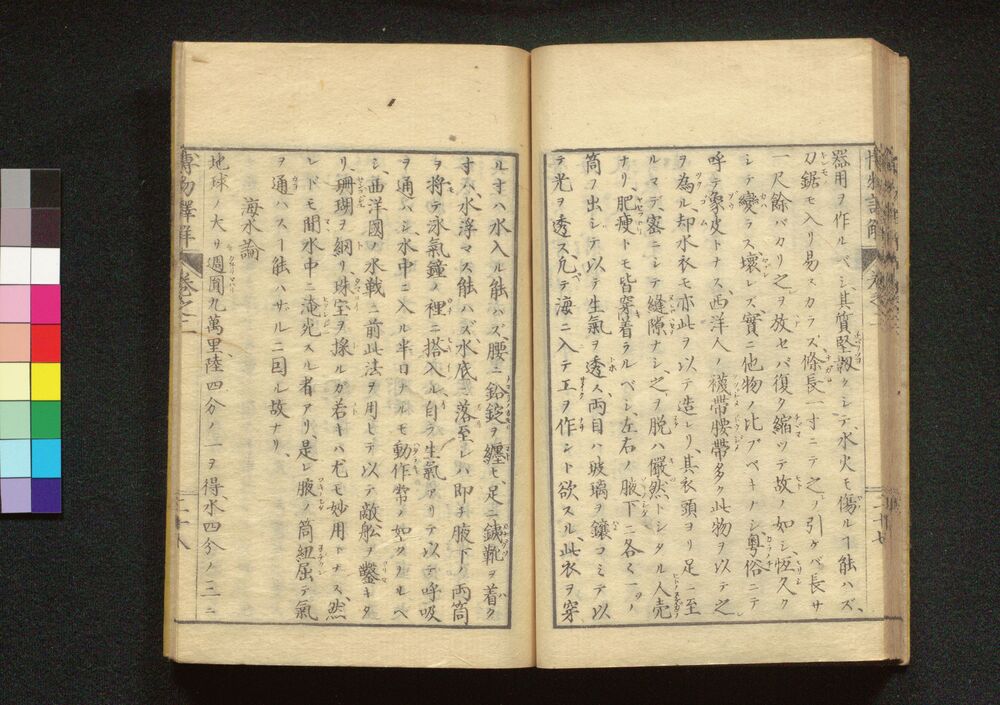 器用ヲ作ルベシ、其質堅靱クシテ、水火モ傷ルヿ能ハズ、
刀鋸モ入リ易スカラズ、條長一寸ニテ之ヲ引ケバ長サ
一尺餘バカリ之ヲ放セバ復ク縮ツテ故ノ如シ、恆久ク
シテ變ラス壞レズ、實ニ他物ノ比ブベキノシ、粤俗ニテ
呼テ象皮トナス、西洋人ノ襪帶腰帶多ク此物ヲ以テ之
ヲ為ル、却水衣モ亦此ヲ以テ造レリ、其衣頭ヨリ足ニ至
ルマデ密ニシテ縫隙ナシ、之ヲ脱ハ儼然トシタル人壳
ナリ、肥痩トモ皆穿着ラルベシ、左右ノ腋下ニ各〱一ツノ
筒ヲ出シテ以テ生氣ヲ透ス、両目ハ玻璃ヲ鑲コミテ以
テ光ヲ透ス、凡テ海ニ入テ工ヲ作ント欲スル、此衣ヲ穿
二十七
ル寸ハ水入ル能ハズ、腰ニ鉛錠ヲ纏モ、足ニ銕靴ヲ着ク
寸ハ、水浮マス能ハズ、水底ニ落至レハ即チ腋下ノ両筒
ヲ將テ泳氣鐘ノ裡ニ搭入ル、自ラ生氣アリテ以テ呼吸
ヲ通ハシ水中ニ入ル半日ナルモ動作常ノ如クタルベ
シ、西洋國ノ水戰ニ前此法ヲ用ヒテ以テ敵舩ヲ鑿キタ
リ、珊瑚ヲ網リ、珠宝ヲ採ルガ若キハ尤モ妙用トナス、然
レドモ間水中ニ淹死スル者アリ、是レ腋ノ筒紐屈テ氣
ヲ通ハスヿ能ハサルニ因ル故ナリ、
海水論
地球ノ大サ週圓九萬里、陸四分ノ一ヲ得、水四分ノ三ニ
博物釋解
卷之二
二十八